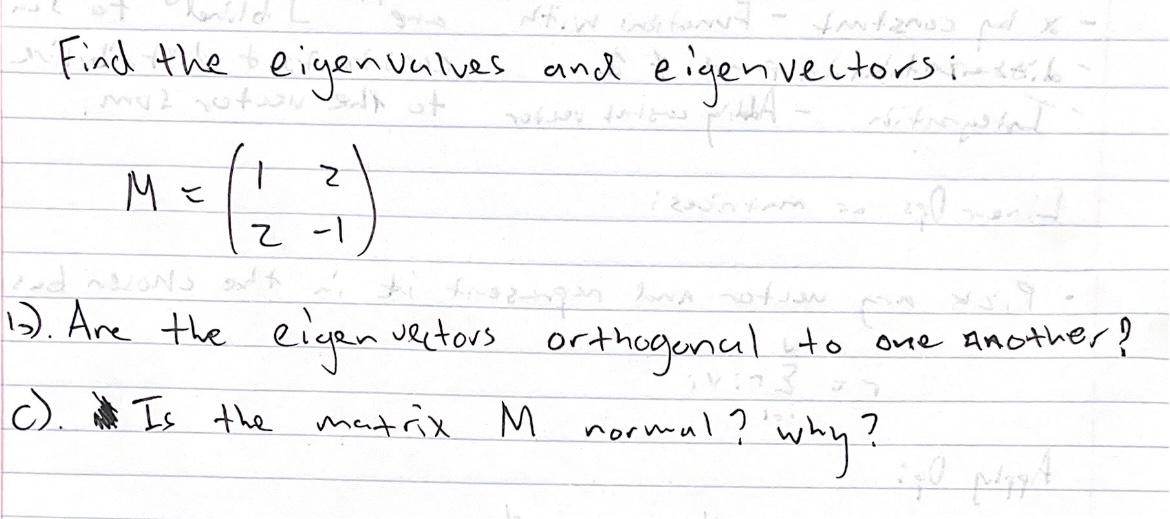 Find the eigenvalues and eigenvectors:
M = (1 2
2 -1)
b). Are the eigenvectors orthogonal to one another?
c). Is the matrix M normal? why?